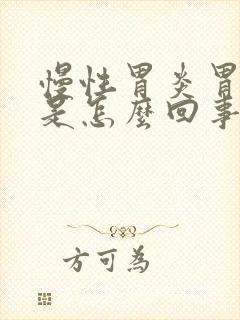 慢性胃炎胃
是怎麼回事
方可為